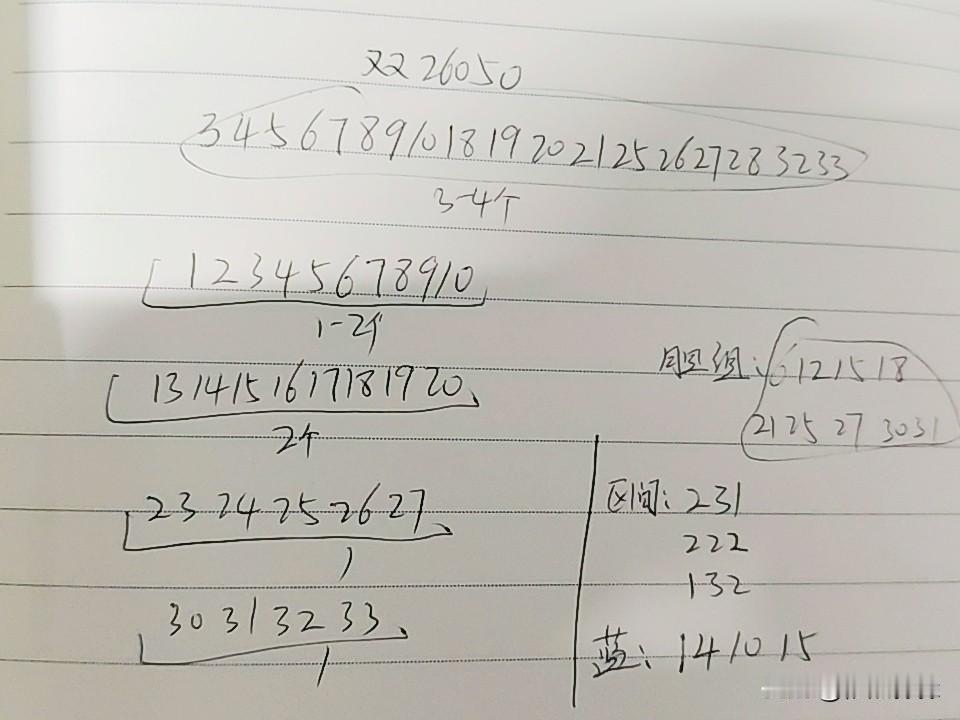 双双26050
3 4 5 6 7 8 9 10 18 19 20 21 25 26 27 28 32 33
3-4个
1 2 3 4 5 6 7 8 9 10
1-2个
13 14 15 16 17 18 19 20
2个
23 24 25 26 27
1
30 31 32 33
1
胆组: 6 12 15 18
21 25 27 30 31
区间: 231
222
132
蓝: 1 4 10 15